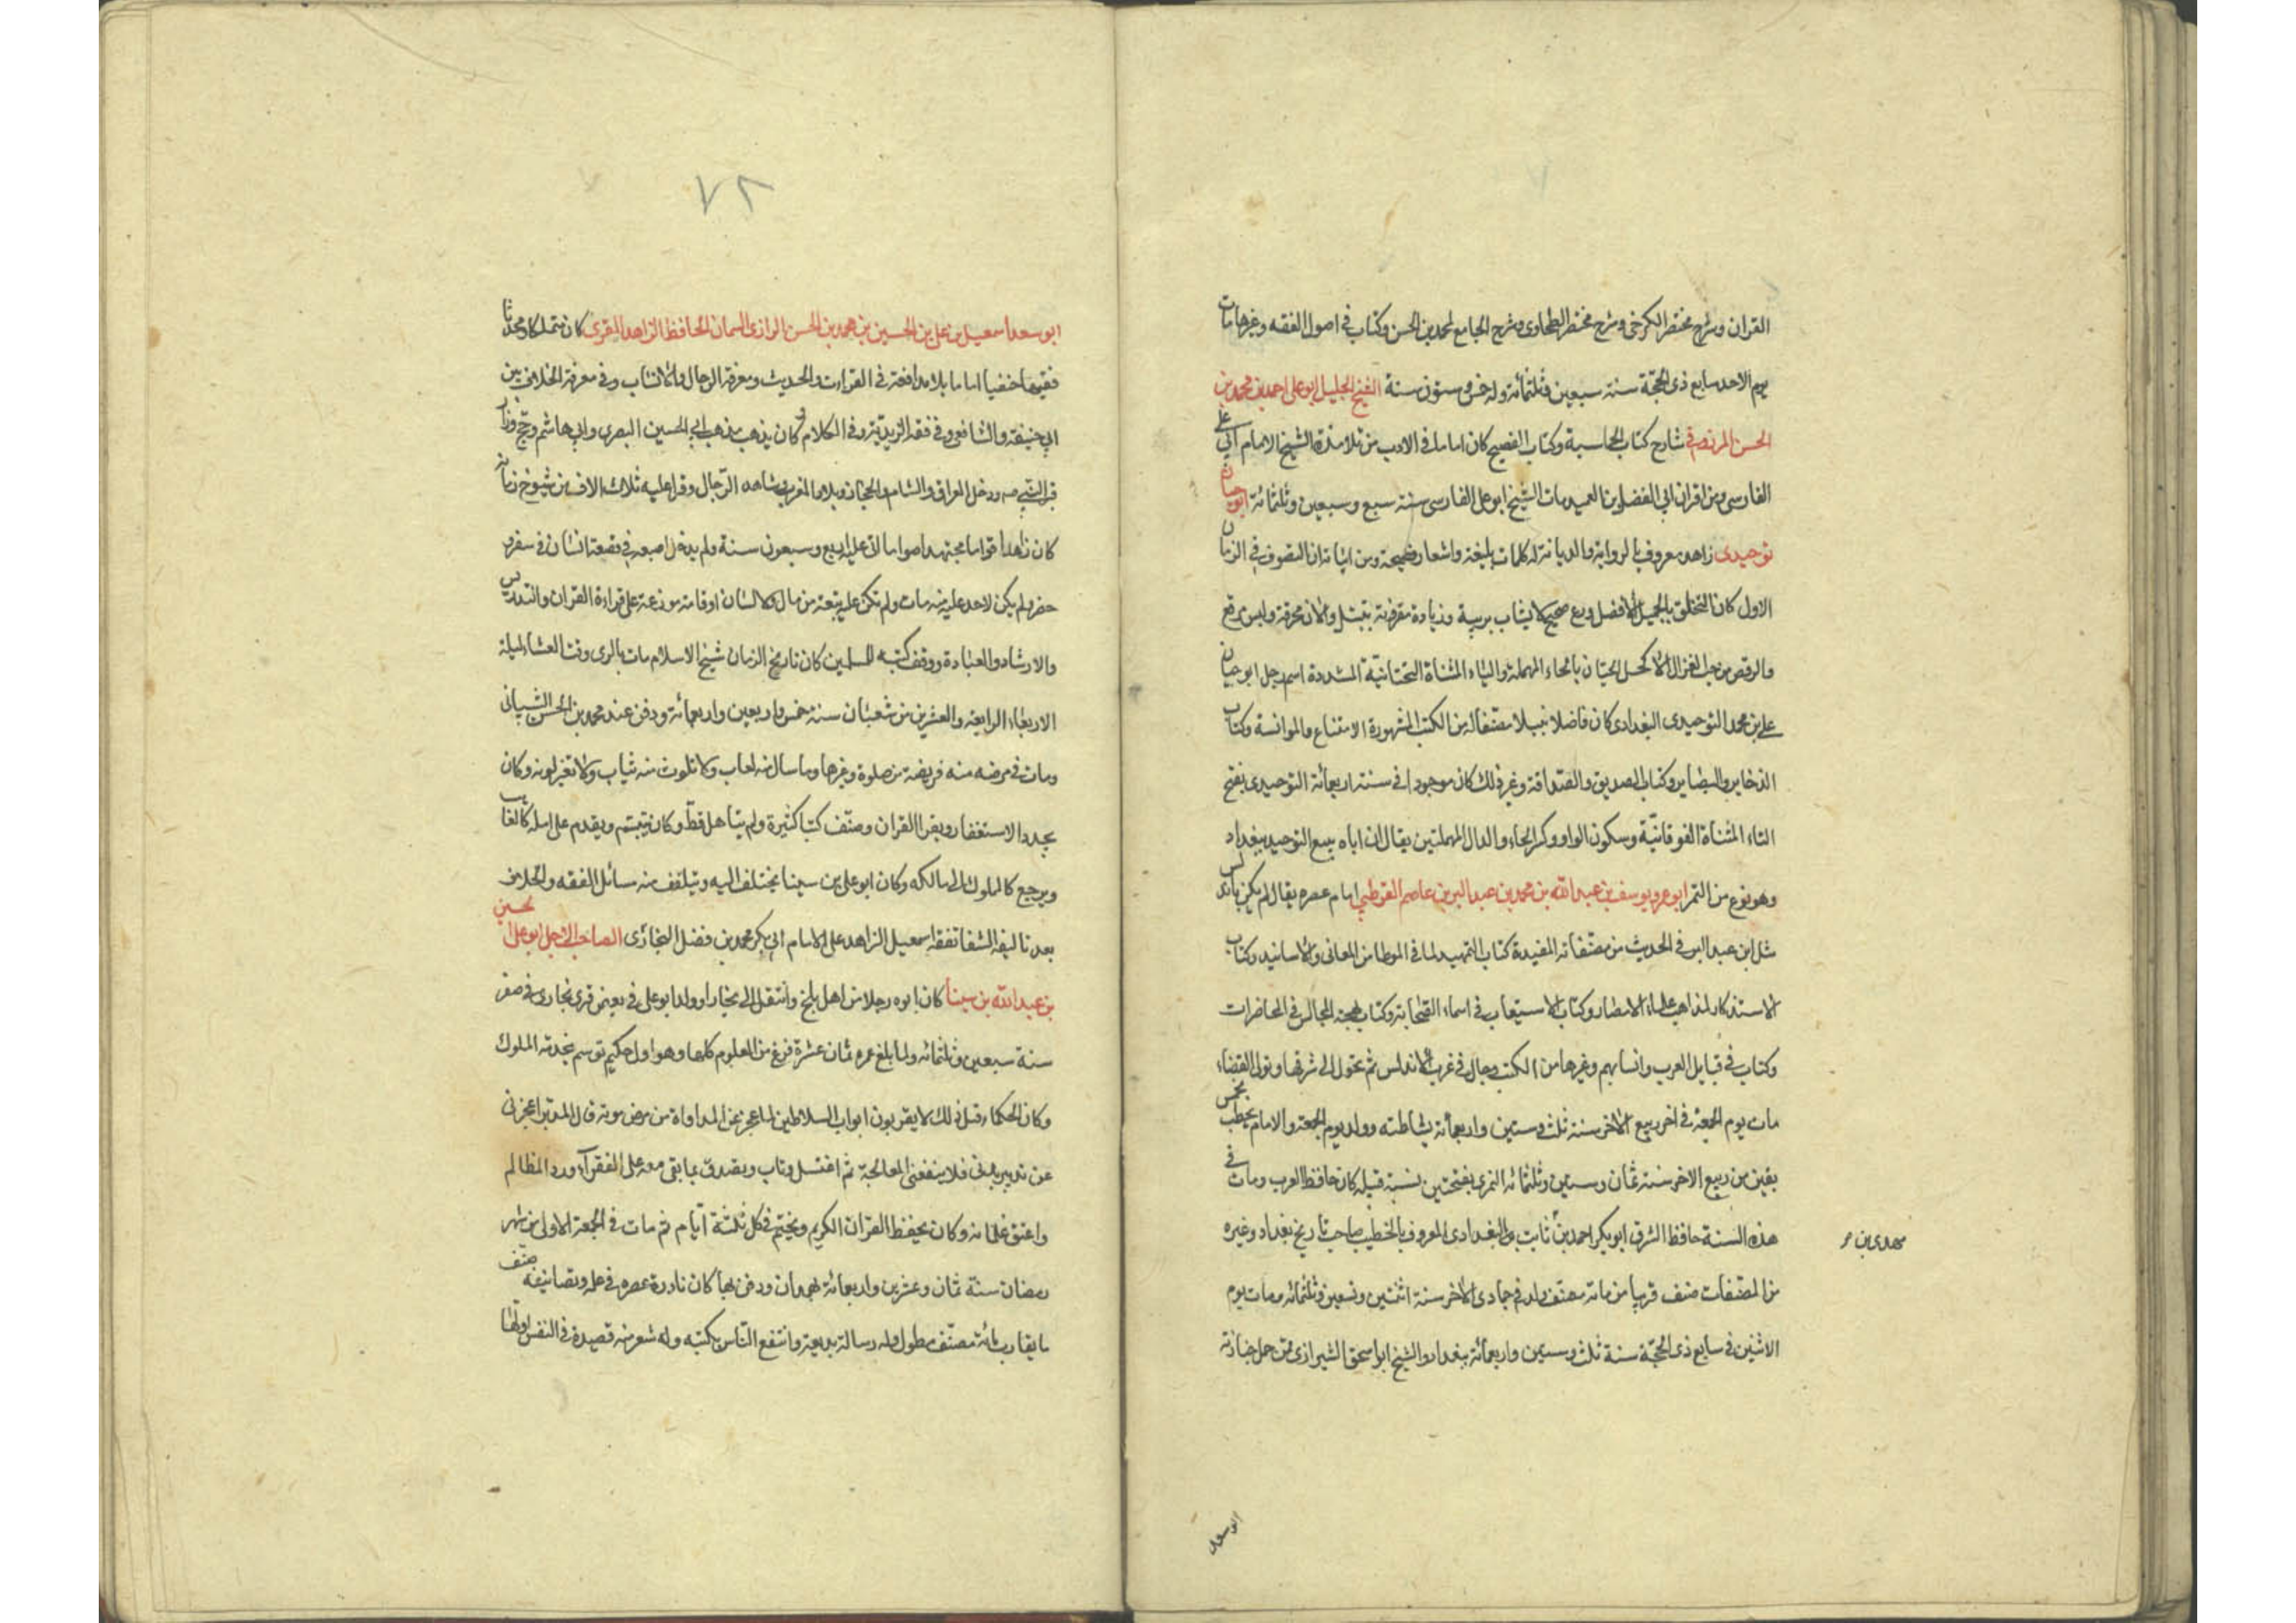 القران وشرح مختصر الكرخى وشرح مختصر الطحاوى وشرح الجامع لمحمد بن الحسن وكتاب فى اصول الفقه وغيرها مات
يوم الاحد سابع ذى الحجة سنة سبعين وثلثمائة وله خمس وستون سنة الشيخ الجليل ابو على احمد بن محمد بن
الحسن المرزوقى شارح كتاب الحماسة وكتاب الفصيح كان اماما فى الادب من تلامذة الشيخ الامام ابى على
الفارسى ومن اقران ابى الفضل بن العميد مات الشيخ ابو على الفارسى سنة سبع وسبعين وثلثمائة ابو حيان
توحيدى زاهد معروف بالرواية والديانة له كلمات بليغة واشعار فصيحة ومن ابياته ان التصوف فى الزمان
الاول كان التخلق بالجميل الافضل وورع صحيح لا يشاب بريبة وزيادة مقرونة بتبتل والان مخرقة ولبس مرقع
والرقص من حب الغزال الاكحل الحيان بالحاء المهملة والياء المثناة التحتانية المشددة اسم رجل ابو حيان
على بن محمد التوحيدى البغدادى كان فاضلا نبيلا مصنفا له من الكتب المشهورة الامتناع والموانسة وكتاب
الذخاير والبصاير وكتاب الصديق والصداقة وغير ذلك كان موجودا فى سنة اربعمائة التوحيدى بفتح
التاء المثناة الفوقانية وسكون الواو وكسر الحاء والدال المهملتين يقال ان اباه يبيع التوحيد ببغداد
وهو نوع من التمر ابو عمرو يوسف بن عبد الله بن محمد بن عبد البر بن عاصم القرطبى امام عصره يقال لم يكن باندلس
مثل ابن عبد البر فى الحديث من مصنفاته المفيدة كتاب التمهيد لما فى الموطا من المعانى والاسانيد وكتاب
الاستذكار لمذاهب علماء الامصار وكتاب الاستيعاب فى اسماء الصحابة وكتاب بهجة المجالس فى المحاضرات
وكتاب فى قبايل العرب وانسابهم وغيرها من الكتب وجال فى غرب الاندلس ثم تحول الى شرقها وتولى القضاء
مات يوم الجمعة فى اخر ربيع الاخر سنة ثلث وستين واربعمائة بشاطبه وولد يوم الجمعة والامام يخطب لخمس
بقين من ربيع الاخر سنة ثمان وستين وثلثمائه النمرى بفتحتين نسبة قبيله كان حافظ العرب ومات فى
هذه السنة حافظ الشرق ابو بكر احمد بن ثابت بن البغدادى المعروف بالخطيب صاحب تاريخ بغداد وغيره
مهدى بن
من المصنفات صنف قريبا من مائة مصنف ولد فى جمادى الاخر سنة اثنتين وتسعين وثلثمائه ومات يوم
الاثنين فى سابع ذى الحجة سنة ثلث وستين واربعمائة ببغداد والشيخ ابو اسحق الشيرازى ممن حمل جنازته
ابو سعد
٧٢
ابو سعد اسمعيل بن على بن الحسين بن محمد بن الحسن الرازى السمان الحافظ الزاهد المقرى كان متكلما ومحدثا
فقيها حنفيا اماما بلا مدافعة فى القراءت والحديث ومعرفة الرجال والانساب وفى معرفة الخلاف بين
ابى حنيفة والشافعى وفى فقه الزيدية وفى الكلام وكان يذهب مذهب ابى الحسين البصرى وابى هاشم وحج وزار
قبر النبى صه ودخل العراق والشام والحجاز وبلاد المغرب وشاهد الرجال وقرا عليه ثلاث الاف من شيوخ زمانه
كان زاهدا قواما مجتهدا صواما اتى عليه اربع وسبعون سنة ولم يدخل اصبعه فى قصعة انسان فى سفر و
حضر ولم يكن لاحد عليه منه مات ولم تكن عليه تبعة من مال ولا لسان اوقاته موزعة على قراءة القران والتدريس
والارشاد والعبادة ووقف كتبه للمسلمين كان تاريخ الزمان شيخ الاسلام مات بالرى وقت العشاء ليلة
الاربعاء الرابعة والعشرين من شعبان سنة خمس واربعين واربعمائة ودفن عند محمد بن الحسن الشيبانى
ومات فى مرضه منه فريضة من صلوة وغيرها وما سال منه لعاب ولا تلوث منه ثياب ولا تغير لونه وكان
يجدد الاستغفار ويقرا القران وصنف كتبا كثيرة ولم يتاهل قط وكان يتبسم ويقدم على اهله كالغايب
ويرجع كالملوك الى مالكه وكان ابو على بن سينا يختلف اليه ويتلقف منه مسائل الفقه والخلاف
بعد تاليفه الشفا تفقه اسمعيل الزاهد على الامام ابى بكر محمد بن فضل البخارى الصاحب الاجل ابو على الحسين
بن عبد الله بن سينا كان ابوه رجلا من اهل بلخ وانتقل الى بخارا وولد ابو على فى بعض قرى بخارى فى صفر
سنة سبعين وثلثمائه ولما بلغ عمره ثمان عشرة فرغ من العلوم كلها وهو اول حكيم توسم بخدمة الملوك
وكان الحكماء قبل ذلك لا يقربون ابواب السلاطين لما عجز عن المداواة من مرض موته قال المدبر اعجزنى
عن تدبير بدنى فلا ينفعنى المعالجة ثم اغتسل وتاب وتصدق بما بقى معه على الفقراء ورد المظالم
واعتق غلمانه وكان يحفظ القران الكريم ويختم فى كل ثلثة ايام ثم مات فى الجمعة الاولى من شهر
رمضان سنة ثمان وعشرين واربعمائة بهمدان ودفن بها كان نادرة عصره فى علمه وتصانيفه صنف
ما يقارب مائة مصنف مطول وله رسالة بديعة وانتفع الناس بكتبه وله شعر منه قصيدة فى النفس اولها